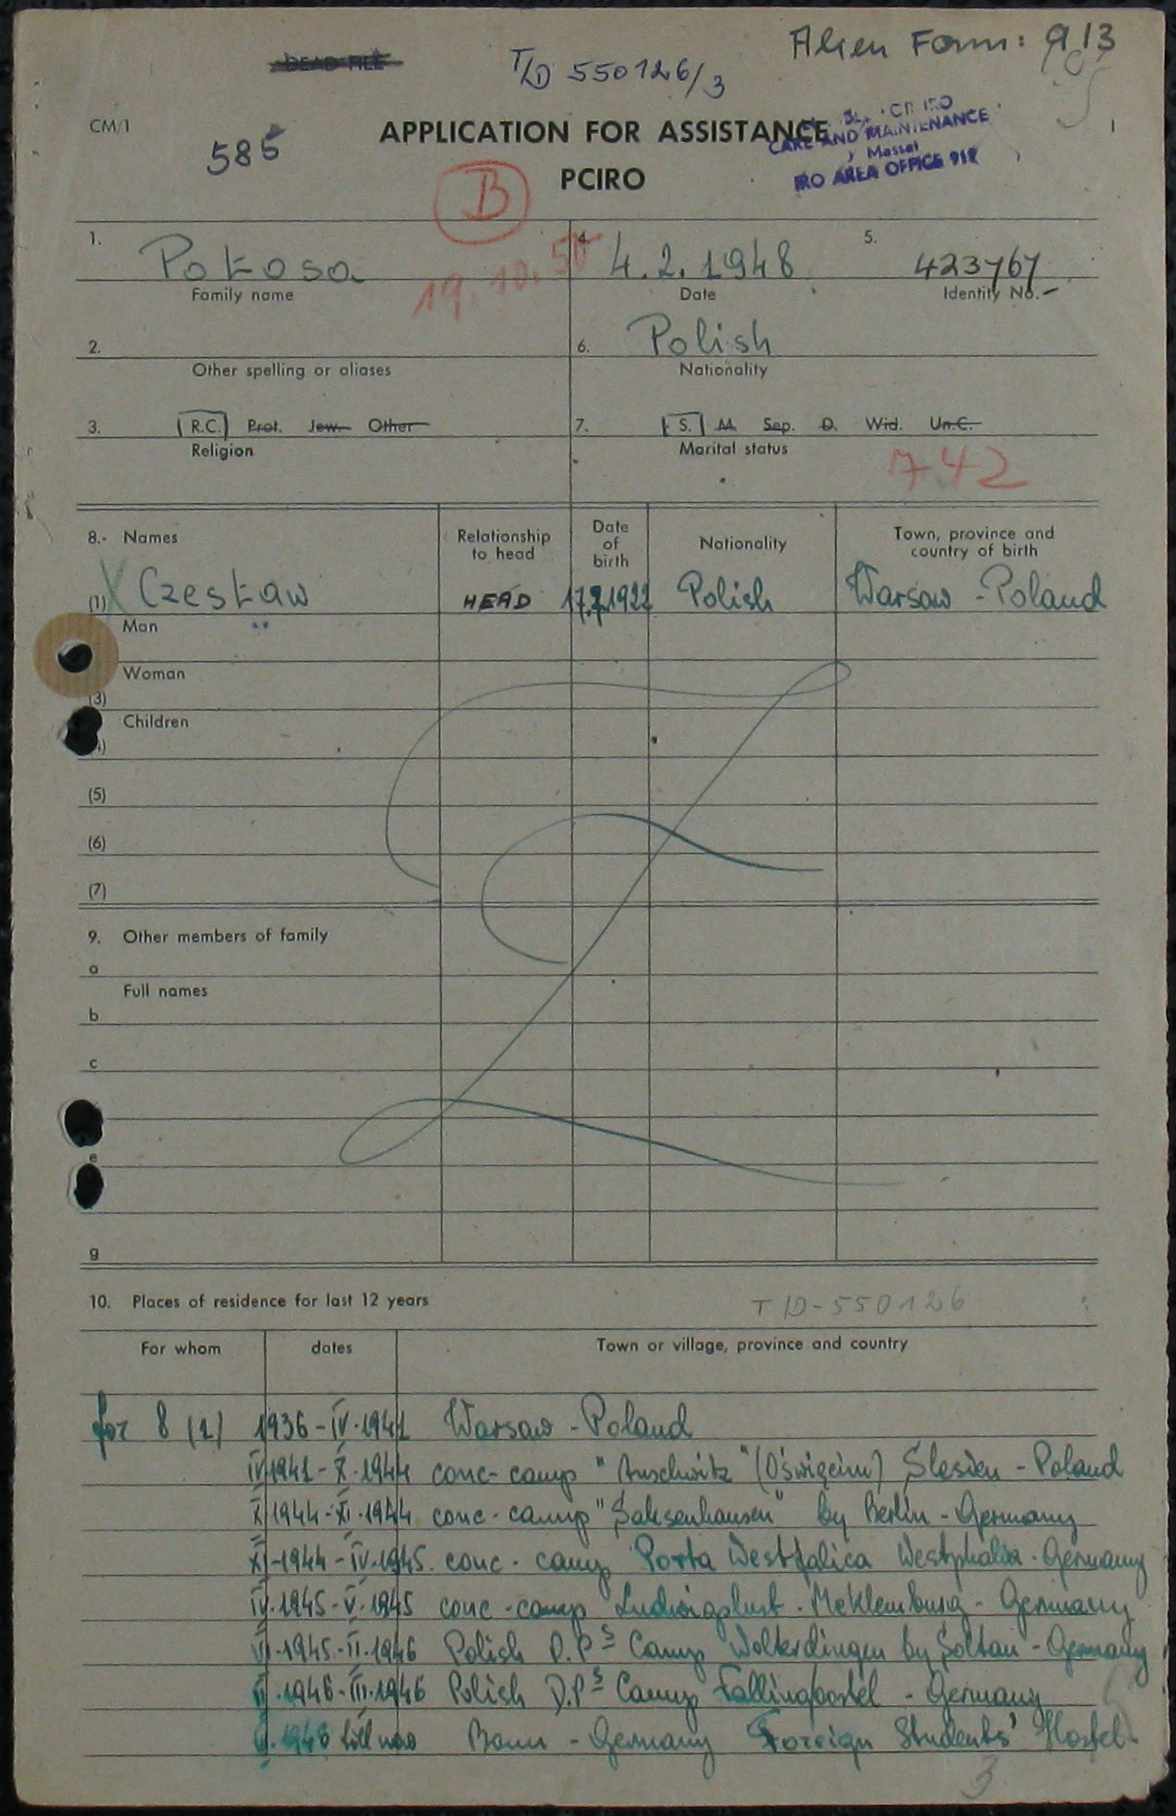 DEAD FILE
T/D 550126/3
Alien Form: 913
CM/1
585
APPLICATION FOR ASSISTANCE
PCIRO
CARE AND MAINTENANCE
IRO AREA OFFICE 912
B
19.10.50
1. Potosa
Family name
4. 4.2.1948
Date
5. 423767
Identity No.
2.
Other spelling or aliases
6. Polish
Nationality
3. R.C. Prot. Jew. Other
Religion
7. S. M. Sep. D. Wid. Un.C.
Marital status
742
8.- Names
Relationship to head
Date of birth
Nationality
Town, province and country of birth
(1) X Czesław HEAD 17.7.1922 Polish Warsaw - Poland
Man
Woman
(3)
Children
(5)
(6)
(7)
9. Other members of family
a
Full names
b
c
e
g
10. Places of residence for last 12 years
TD-550126
For whom dates Town or village, province and country
for 8 (1) 1936 - IV.1941 Warsaw - Poland
IV.1941 - X.1944 conc-camp "Auschwitz" (Oświęcim) Slesien - Poland
X.1944 - XI.1944 conc-camp "Sachsenhausen" by Berlin - Germany
XI.1944 - IV.1945. conc-camp Porta Westfalica Westphalia - Germany
IV.1945 - V.1945 conc-camp Ludwigslust - Meklemburg - Germany
1945 - II.1946 Polish D.Ps Camp Wolterdingen by Soltau - Germany
II.1946 - III.1946 Polish D.Ps Camp Fallingbostel - Germany
till now Bonn - Germany Foreign Students' Hostel
3